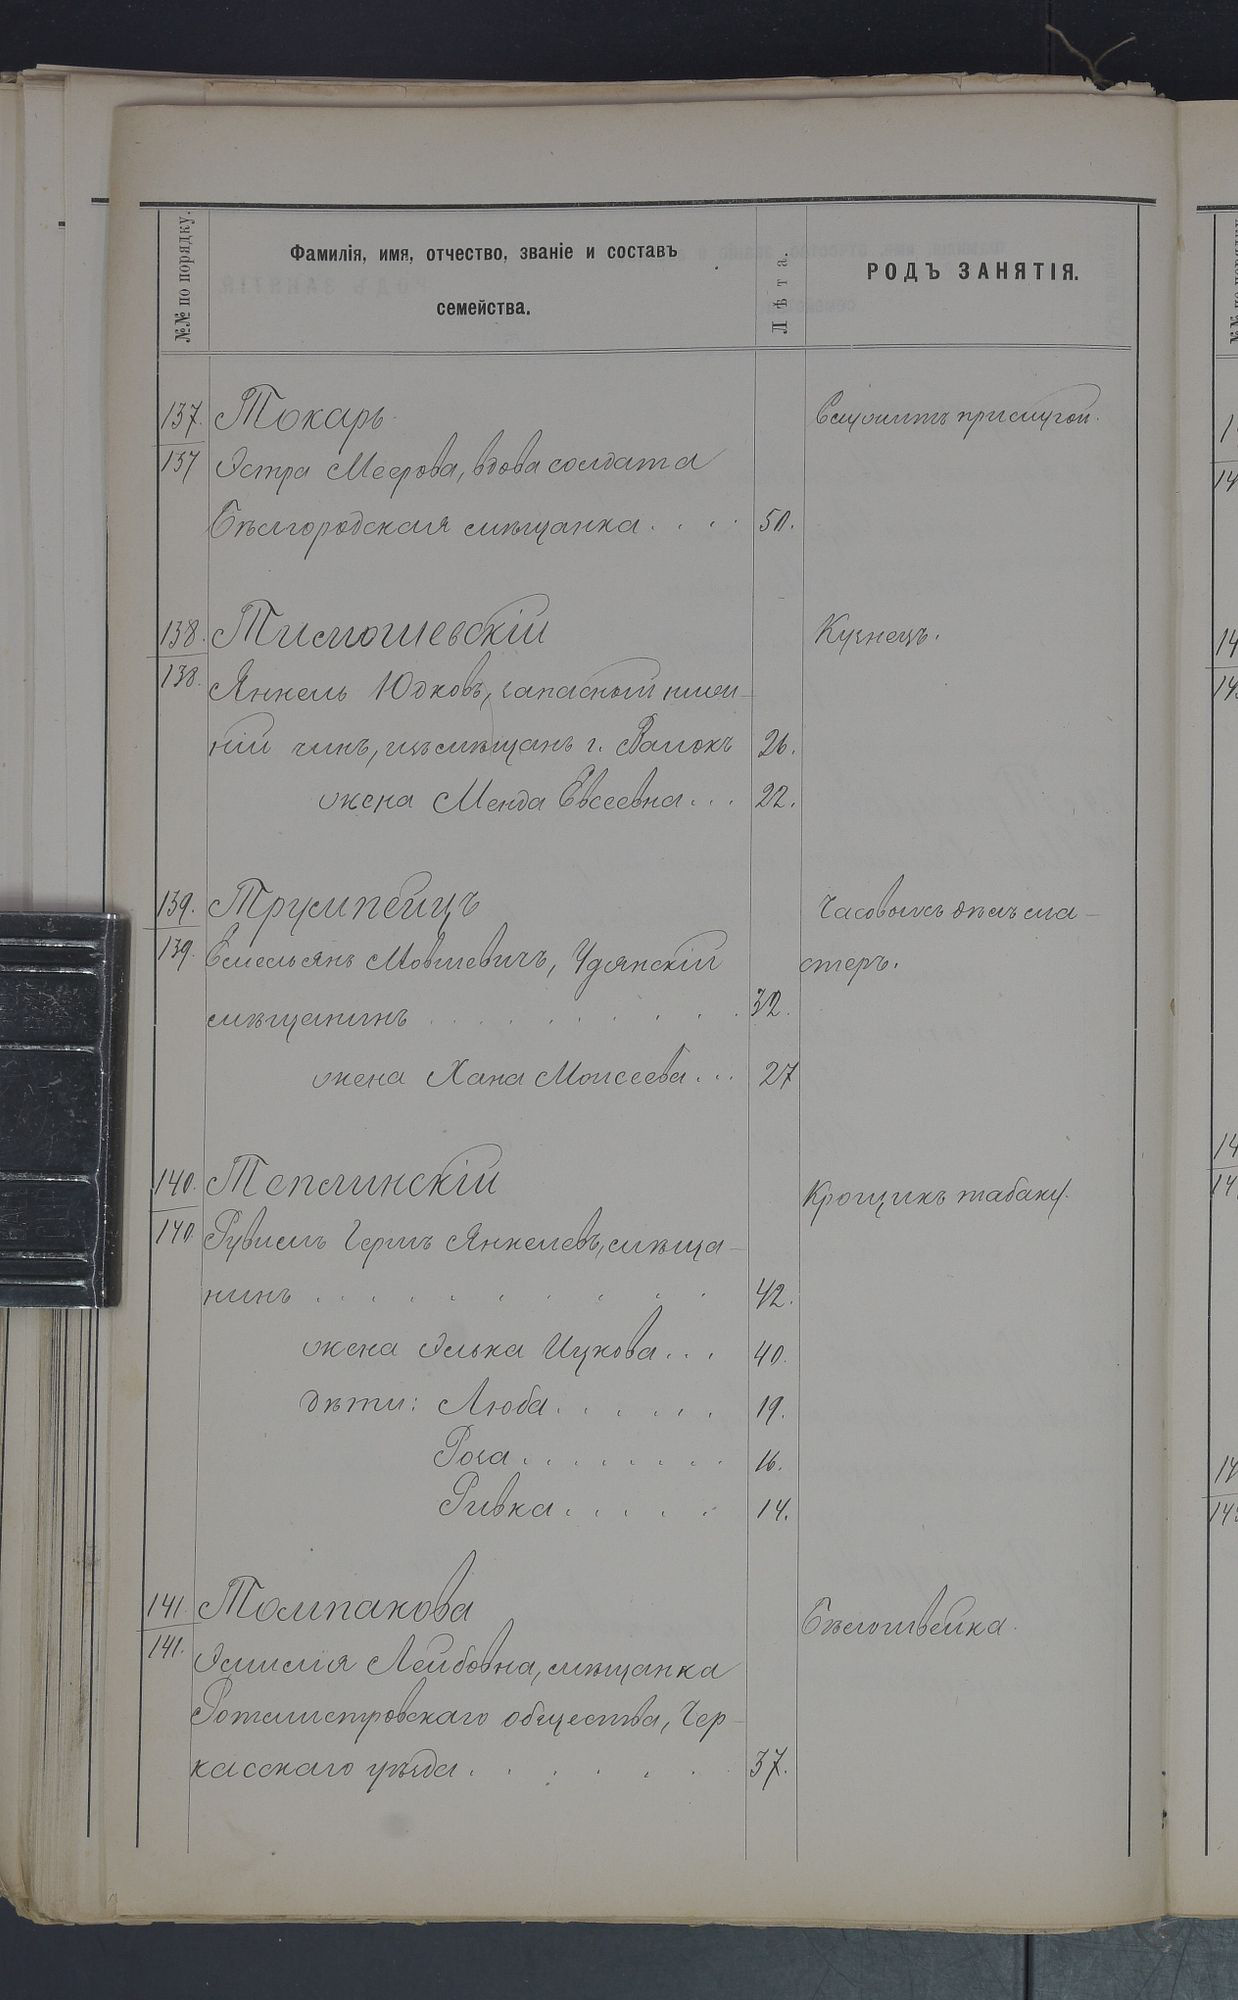 №№ по порядку.
Фамилія, имя, отчество, званіе и составъ
семейства.
Лѣта.
РОДЪ ЗАНЯТІЯ.
137. Токарь. Служитъ прислугой.
137 Эстра Меерова, вдова солдата
Бѣлгородская мѣщанка . . . . 50.
138. Тимошевскій Кузнецъ.
138. Янкель Юдковъ, запасный ниж-
ній чинъ, изъ мѣщанъ г. Валокъ 26.
жена Менда Евсеевна . . . 22.
139. Трумпейцъ Часовыхъ дѣлъ ма-
139. Емельянъ Мовшевичъ, Удянскій стеръ.
мѣщанинъ . . . . . . . . . . 32.
жена Хана Моисеева . . . 27
140. Теплинскій Крошикъ табаку.
140 Рувимъ Герцъ Янкелевъ, мѣща-
нинъ . . . . . . . . . . 42.
жена Элька Ицкова . . . 40.
дѣти: Люба . . . . . . 19.
Роза . . . . . . . . 16.
Ривка . . . . . 14.
141. Томпакова Бѣлошвейка.
141. Эмилія Лейбовна, мѣщанка
Ротмистровскаго общества, Чер-
касскаго уѣзда . . . . . . . 37.